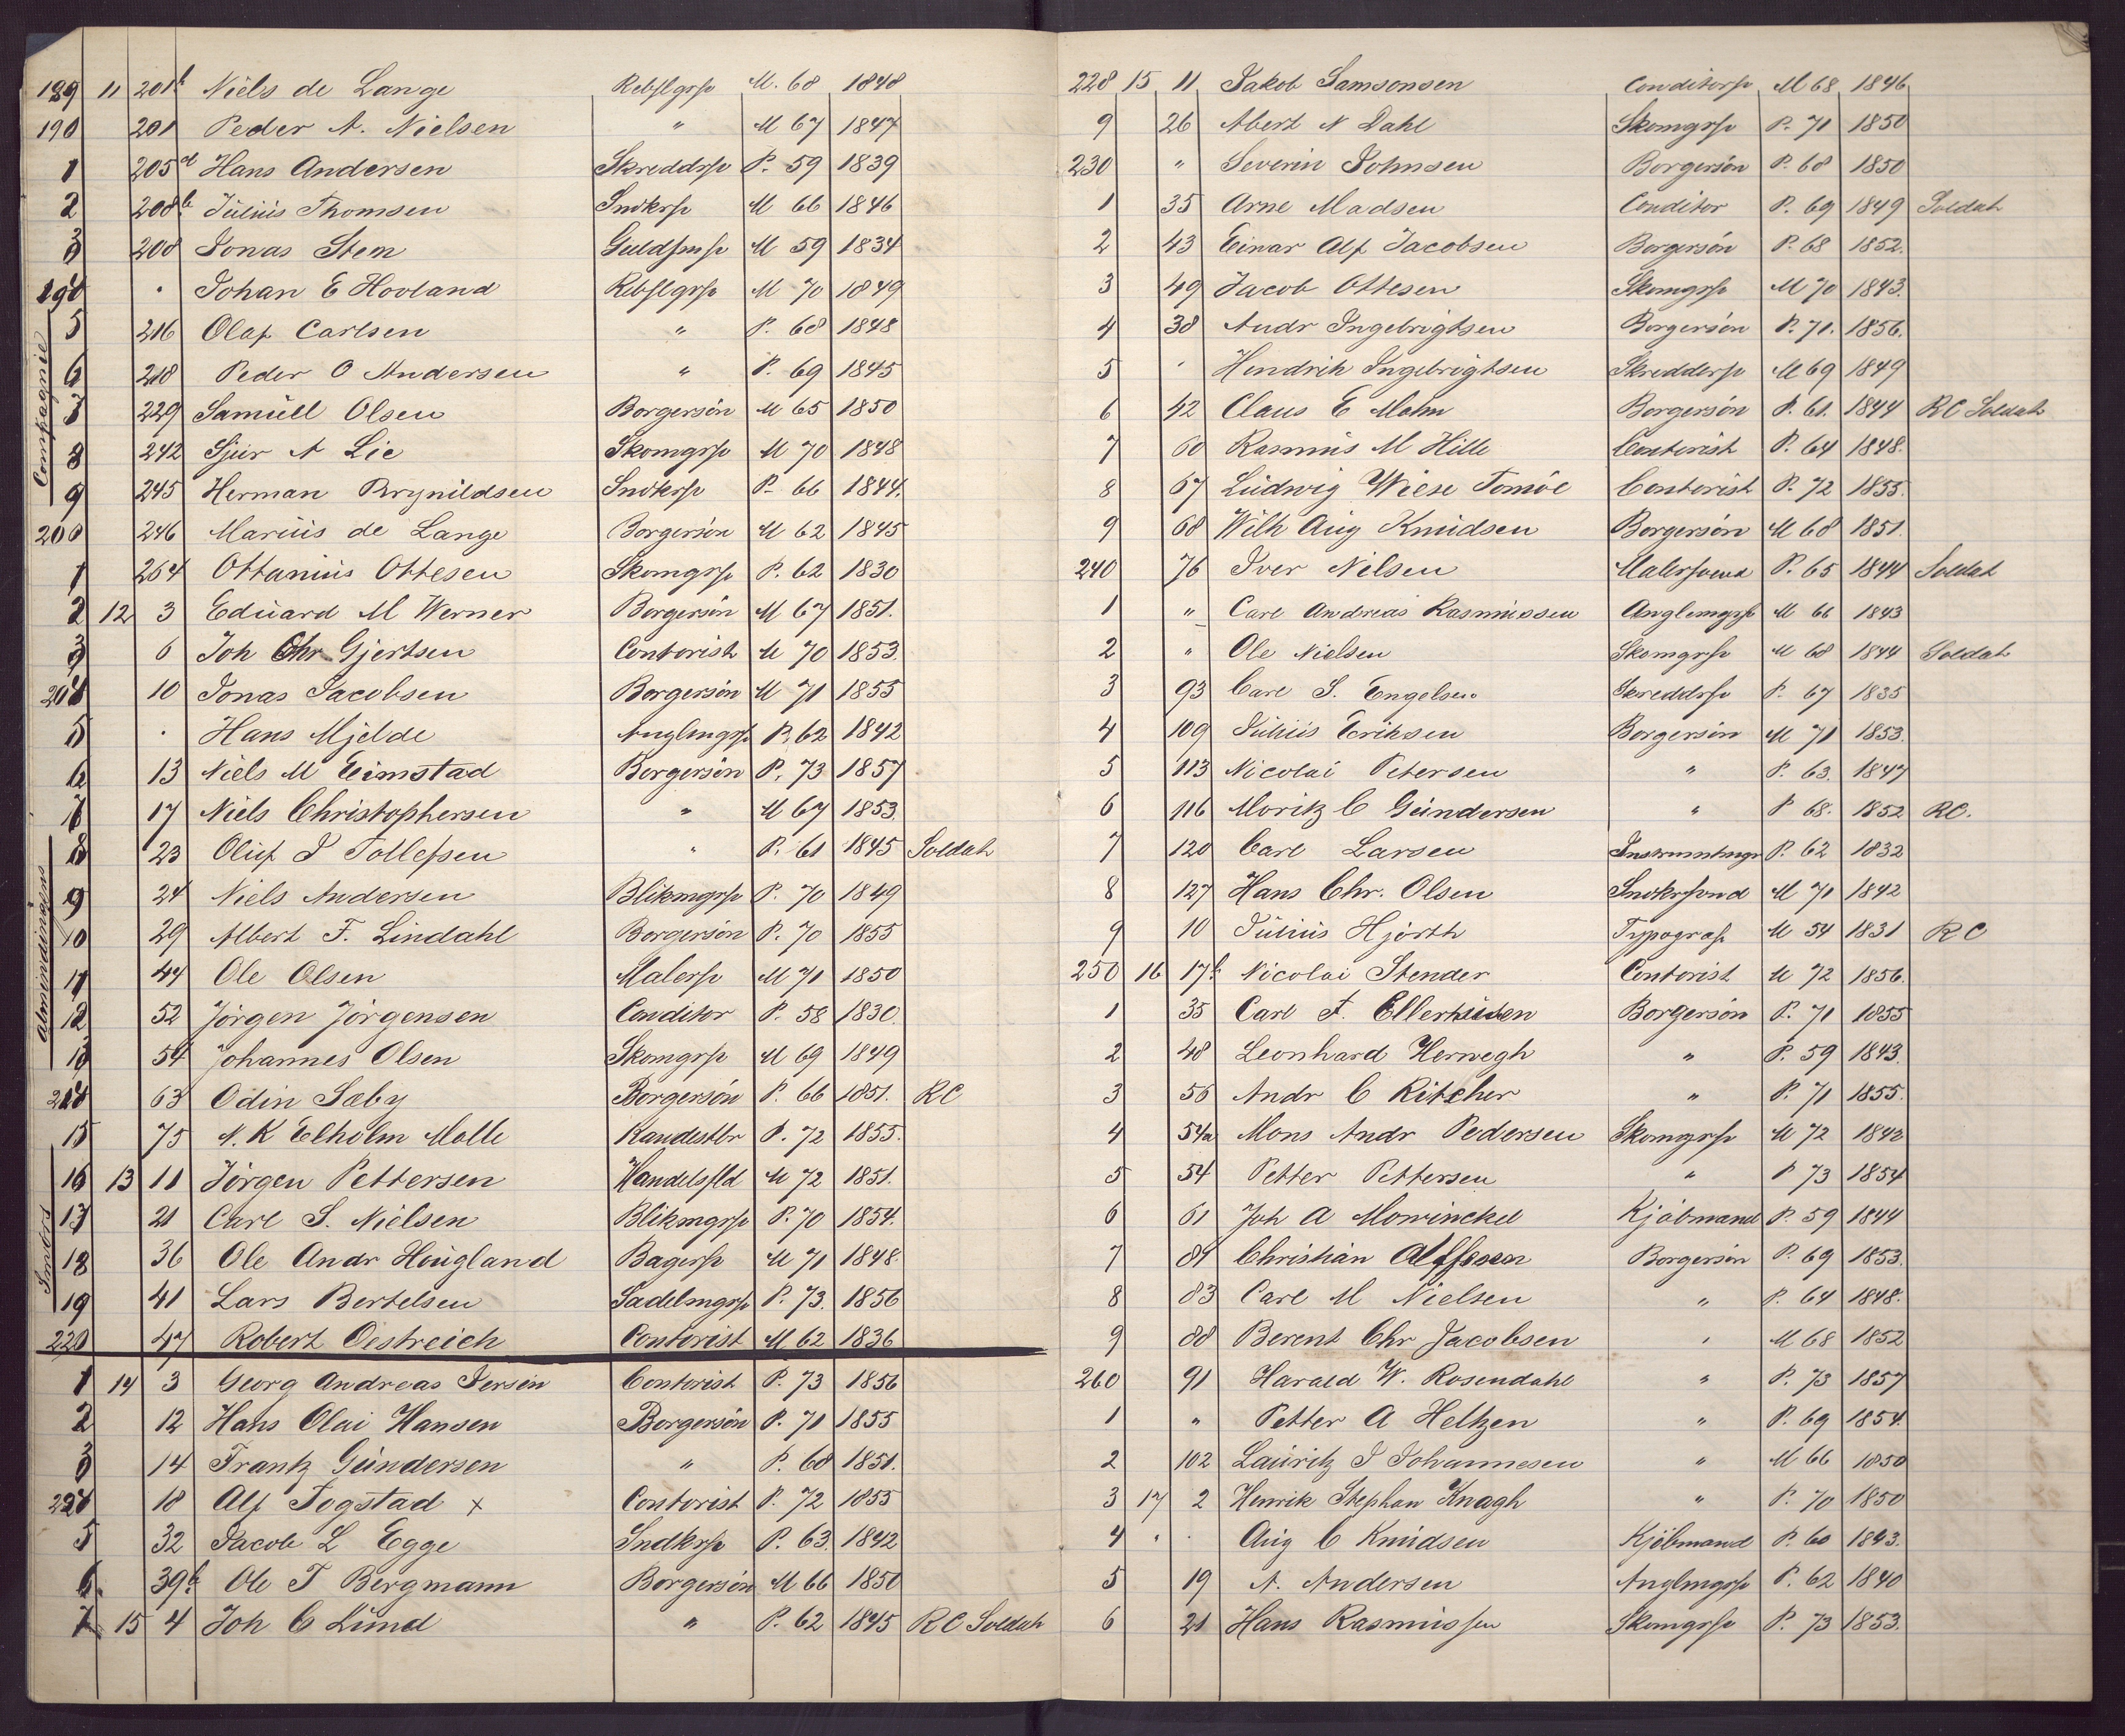 189 11 201b Niels de Lange Rebslgrsv M. 68 1848
190 201 Peder A. Nielsen " M 67 1847
1 205d Hans Andersen Skreddrsv P. 59 1839
2 208b Julius Thomsen Sndkrsv M 66 1846
3 208 Jonas Stem Guldsmsv M 59 1834
194 " Johan E Hovland Rebslgrsv M 70 1849
5 216 Olaf Carlsen " P. 68 1848
Compagnie
6 218 Peder O Andersen " P. 69 1845
7 229 Samuel Olsen Borgersön M 65 1850
8 242 Sjur A Lie Skomgrsv M 70 1848
9 245 Herman Brynildsen Sndkrsv P. 66 1844.
200 246 Marius de Lange Borgersön M 62 1845
1 264 Ottanius Ottesen Skomgrsv P. 62 1830
2 12 3 Eduard M Werner Borgersön M 67 1851.
3 6 Joh Chr Gjertsen Contorist M 70 1853.
204 10 Jonas Jacobsen Borgersön M 71 1855
5 " Hans Mjelde Anglmgrsv P. 62 1842
6 13 Niels M Eimstad Borgersön P. 73 1857
7 17 Niels Christophersen " M 67 1853.
8 23 Oluf J Tollefsen " P. 61 1845 Soldat
Almindingens
9 24 Niels Andersen Blikmgrsv P. 70 1849
10 29 Albert F. Lindahl Borgersön P. 70 1855
11 44 Ole Olsen Malersv M 71 1850
12 52 Jörgen Jörgensen Conditor P. 58 1830.
13 54 Johannes Olsen Skomgrsv M 69 1849
214 63 Odin Sæby Borgersön P. 66 1851. RC
15 75 N. K Elholm Molle Handestbr P. 72 1855.
16 13 11 Jörgen Pettersen Handelsfld M 72 1851.
17 21 Carl S. Nielsen Blikmgrsv P. 70 1854.
18 36 Ole Andr Hougland Bagersv M 71 1848.
Smörs
19 41 Lars Bertelsen Sadelmgrsv P. 73. 1856
220 47 Robert Oestreich Contorist M 62 1836
1 14 3 Georg Andreas Iversen Contorist P. 73 1856
2 12 Hans Olai Hansen Borgersön P. 71 1855
3 14 Frantz Gundersen " P. 68 1851.
224 18 Alf Fogstad x Contorist P. 72 1855
5 32 Jacob L Egge Sndkrsv P. 63. 1842
6. 39b Ole T Bergmann Borgersön M 66 1850
7 15 4 Joh C Lund " P. 62 1845 RC Soldat
228 15 11 Jakob Samsonsen Conditorsv M 68 1846
9 26 Abert N Dahl Skomgrsv P. 71 1850
230 " Severin Johnsen Borgersön P. 68 1850
1 35 Arne Madsen Conditor P. 69 1849 Soldat
2 43 Einar Alf Jacobsen Borgersön P. 68 1852.
3 49 Jacob Ottesen Skomgrsv M 70 1843.
4 38 Andr Ingebrigtsen Borgersön P. 71. 1856.
5 " Hendrik Ingebrigtsen Skreddersv M 69 1849
6 42 Claus E Mohn Borgersön P. 61. 1844 RC Soldat
7 60 Rasmus M Hille Contorist P. 64 1848.
8 67 Ludwig Wiese Tomöe Contorist P. 72 1855.
9 68 Wilh Aug Knudsen Borgersön M 68 1851.
240 76 Iver Nilsen Malersvend P. 65 1844 Soldat
1 " Carl Andreas Rasmussen Anglemgrsv M 66 1843
2 " Ole Nielsen Skomgrsv M 68 1844 Soldat
3 93 Carl S. Engelsen Skreddrsv P. 67 1835
4 109 Julius Eriksen Borgersön M 71 1853.
5 113 Nicolai Petersen " P. 63. 1847
6 116 Moritz C Gundersen " P 68. 1852 RC.
7 120 Carl Larsen Instrumntmgr P. 62 1832
8 127 Hans Chr. Olsen Snekrsvnd M 71 1842
9 10 Julius Hjorth Typograf M 54 1831 RC
250 16 17b Nicolai Stender Contorist M 72 1856.
1 35 Carl F. Ellerhusen Borgersön P. 71 1855
2 48 Leonhard Herwegh " P. 59 1843.
3 56 Andr C Ritcher " P. 71 1855.
4 54a Mons Andr Pedersen Skomgrsv M 72 1842
5 54 Petter Pettersen " P 73 1854
6 61 Joh A Mowinckel Kjöbmand P. 59 1844
7 81 Christian Alfssen Borgersön P. 69 1853.
8 83 Carl M Nielsen " P. 64 1848.
9 88 Berent Chr Jacobsen " M 68 1852
260 91 Harald W. Rosendahl " P. 73 1857
1 " Petter A Heltzen " P. 69 1854.
2 102 Lauritz J Johannesen " M 66 1850
3 17 2 Henrik Stephan Knagh " P. 70 1850
4 " " Aug C Knudsen Kjöbmand P. 60 1843.
5 19 A. Andersen Anglmgrsv P. 62 1840
6 21 Hans Rasmussen Skomgrsv P. 73 1853.